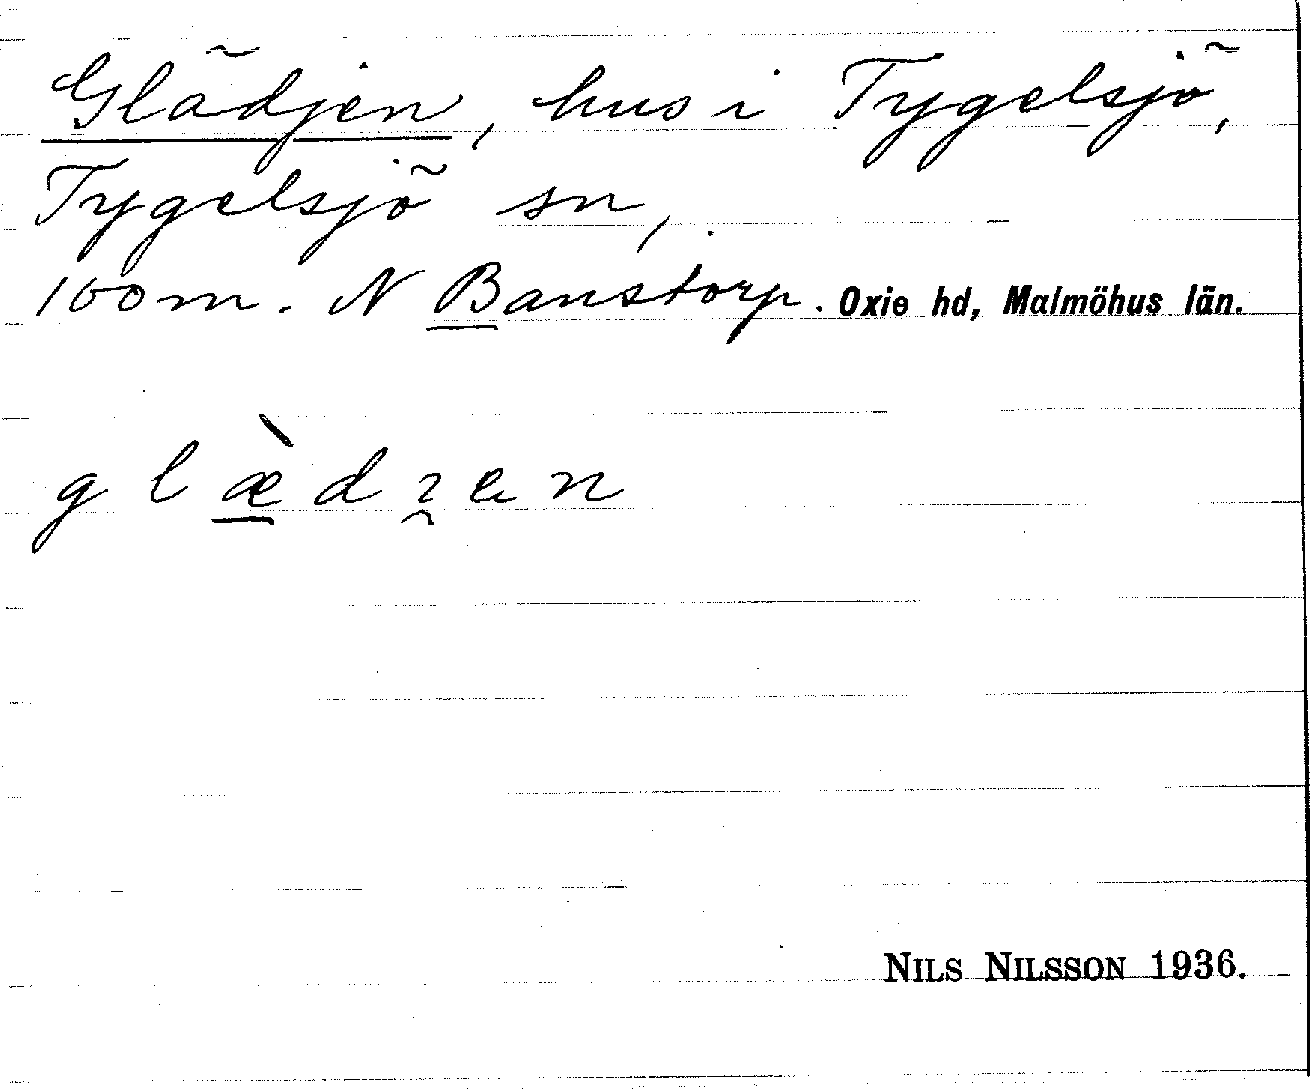 Glädjen, hus i Tygelsjö,
Tygelsjö sn,
100 m. N Banstorp. Oxie hd, Malmöhus län.
NILS NILSSON 1936.